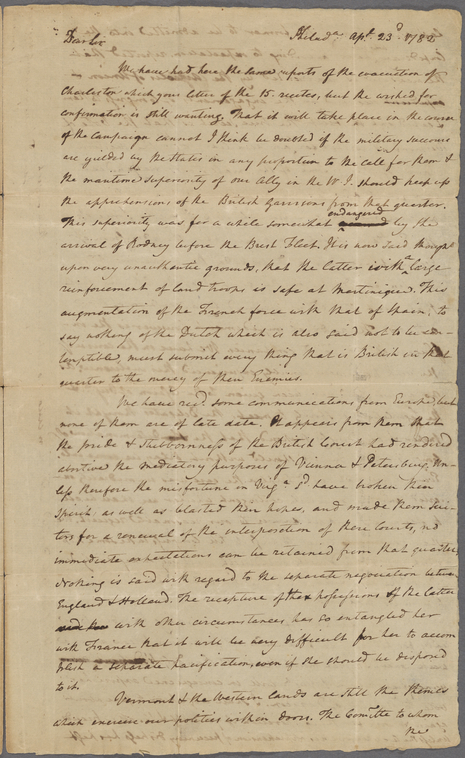 Philada. Apl. 23d. 1782
Dear Sir
We have had here the same reports of the evacuation of
Charleston which your letter of the 15. recites, but the wished for
confirmation is still wanting. That it will take place in the course
of the Campaign cannot I think be doubted if the military succours
are yielded by the States in any proportion to the call for them &
the maritime superiority of our Ally in the W. I. should keep up
the apprehensions of the British Garrisons from that quarter.
This superiority was for a while somewhat endangered by the
arrival of Rodney before the Brest Fleet. It is now said though
upon very unauthentic grounds, that the latter with a large
reinforcement of land troops is safe at Martinique. This
augmentation of the French force with that of Spain, to
say nothing of the Dutch which is also said not to be con-
temptible, must submit every thing that is British in that
quarter to the mercy of their Enemies.
We have recd. some communications from Europe, but
none of them are of late date. It appears from them that
the pride & stubbornness of the British Court had rendered
abortive the mediatory purposes of Vienna & Petersburg. Un-
less therefore the misfortune in Virga. sd. have broken their
Spirit as well as blasted their hopes, and made them sui-
tors for a renewal of the interposition of these Courts, no
immediate expectations can be retained from that quarter.
Nothing is said with regard to the separate negociation between
England & Holland. The recapture of the possessions of the latter
with other circumstances has so entangled her
with France that it will be very difficult for her to accom
plish a separate pacification, even if she should be disposed
to it.
Vermont & the Western lands are still the themes
which exercise our politics within doors. The Comitte to whom
the